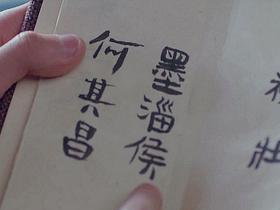 墨淄侯
何其昌